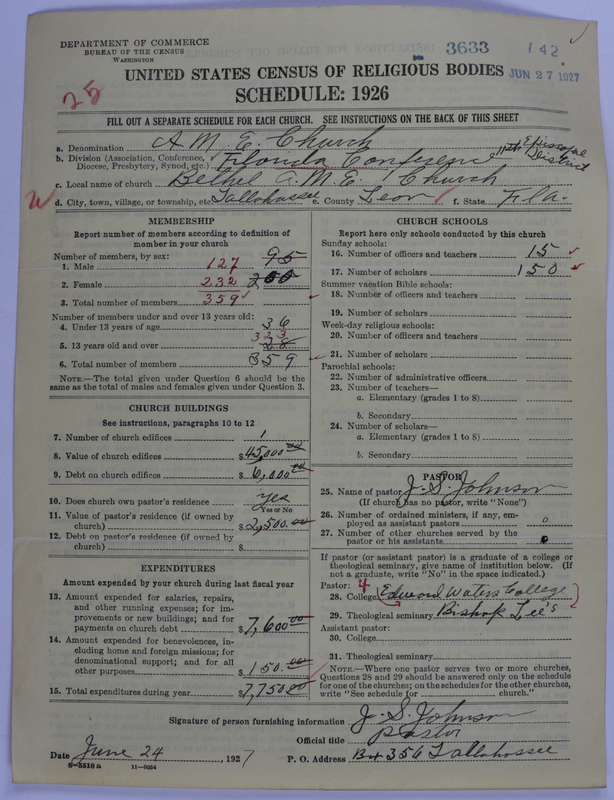 DEPARTMENT OF COMMERCE
BUREAU OF THE CENSUS
WASHINGTON
3633
142
JUN 27 1927
25
UNITED STATES CENSUS OF RELIGIOUS BODIES
SCHEDULE: 1926
FILL OUT A SEPARATE SCHEDULE FOR EACH CHURCH. SEE INSTRUCTIONS ON THE BACK OF THIS SHEET
a. Denomination A. M. E. Church
b. Division (Association, Conference, Diocese, Presbytery, Synod, etc.) Florida Conference 11th Episcopal District
c. Local name of church Bethel A. M. E. Church
d. City, town, village, or township, etc. Tallahassee e. County Leon f. State Fla.
MEMBERSHIP
Report number of members according to definition of
member in your church
Number of members, by sex:
1. Male 127 95
2. Female 232 200
3. Total number of members 359
Number of members under and over 13 years old:
4. Under 13 years of age 36
5. 13 years old and over 323 28
6. Total number of members 359
NOTE.—The total given under Question 6 should be the
same as the total of males and females given under Question 3.
CHURCH BUILDINGS
See instructions, paragraphs 10 to 12
7. Number of church edifices 1
8. Value of church edifices $45,000.00
9. Debt on church edifices $6,000.00
10. Does church own pastor's residence yes
Yes or No
11. Value of pastor's residence (if owned by
church) $2,500.00
12. Debt on pastor's residence (if owned by
church) $
EXPENDITURES
Amount expended by your church during last fiscal year
13. Amount expended for salaries, repairs,
and other running expenses; for im-
provements or new buildings; and for
payments on church debt $7,600.00
14. Amount expended for benevolences, in-
cluding home and foreign missions; for
denominational support; and for all
other purposes $150.00
15. Total expenditures during year $7,750.00
CHURCH SCHOOLS
Report here only schools conducted by this church
Sunday schools:
16. Number of officers and teachers 15
17. Number of scholars 150
Summer vacation Bible schools:
18. Number of officers and teachers
19. Number of scholars
Week-day religious schools:
20. Number of officers and teachers
21. Number of scholars
Parochial schools:
22. Number of administrative officers
23. Number of teachers—
a. Elementary (grades 1 to 8)
b. Secondary
24. Number of scholars—
a. Elementary (grades 1 to 8)
b. Secondary
PASTOR
25. Name of pastor J. S. Johnson
(If church has no pastor, write "None")
26. Number of ordained ministers, if any, em-
ployed as assistant pastors 0
27. Number of other churches served by the
pastor or his assistants
If pastor (or assistant pastor) is a graduate of a college or
theological seminary, give name of institution below. (If
not a graduate, write "No" in the space indicated.)
Pastor: 4
28. College Edward Waters College
29. Theological seminary Bishop Lee's
Assistant pastor:
30. College
31. Theological seminary
NOTE.—Where one pastor serves two or more churches,
Questions 28 and 29 should be answered only on the schedule
for one of the churches; on the schedules for the other churches,
write "See schedule for church."
Signature of person furnishing information J. S. Johnson
Official title Pastor
Date June 24, 1927 P. O. Address Bx 356 Tallahassee
8-5518a 11-8654